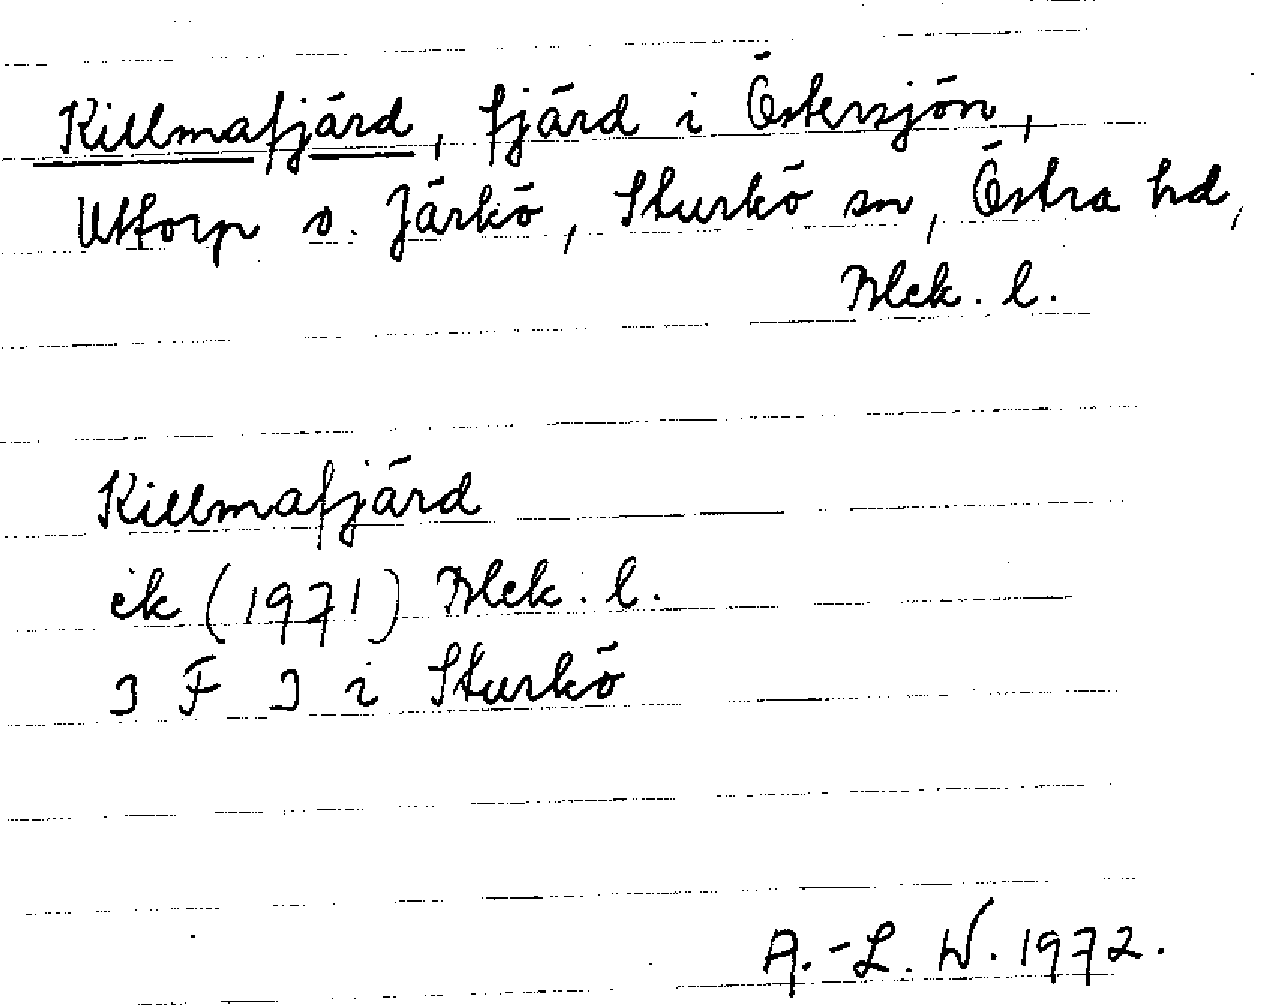 Killmafjärd, fjärd i Östersjön,
Uttorp o. Järkö, Sturkö sn, Östra hd,
Blek. l.
Killmafjärd
ek (1971) Blek. l.
3 F J i Sturkö
A.-L. W. 1972.